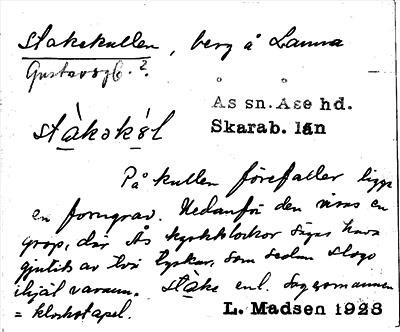 Stakekullen, berg å Lanna
Gustavsgb. ?
Ås sn. Åse hd.
Skarab. län
På kullen förefaller ligga
en forngrav. Nedanför den visas en
grop, där Ås kyrkklockor sägas hava
gjutits av två tyskar, som sedan slogo
ihjäl varann. Ståke enl. sagesmannen
= klockstapel.
L. Madsen 1928